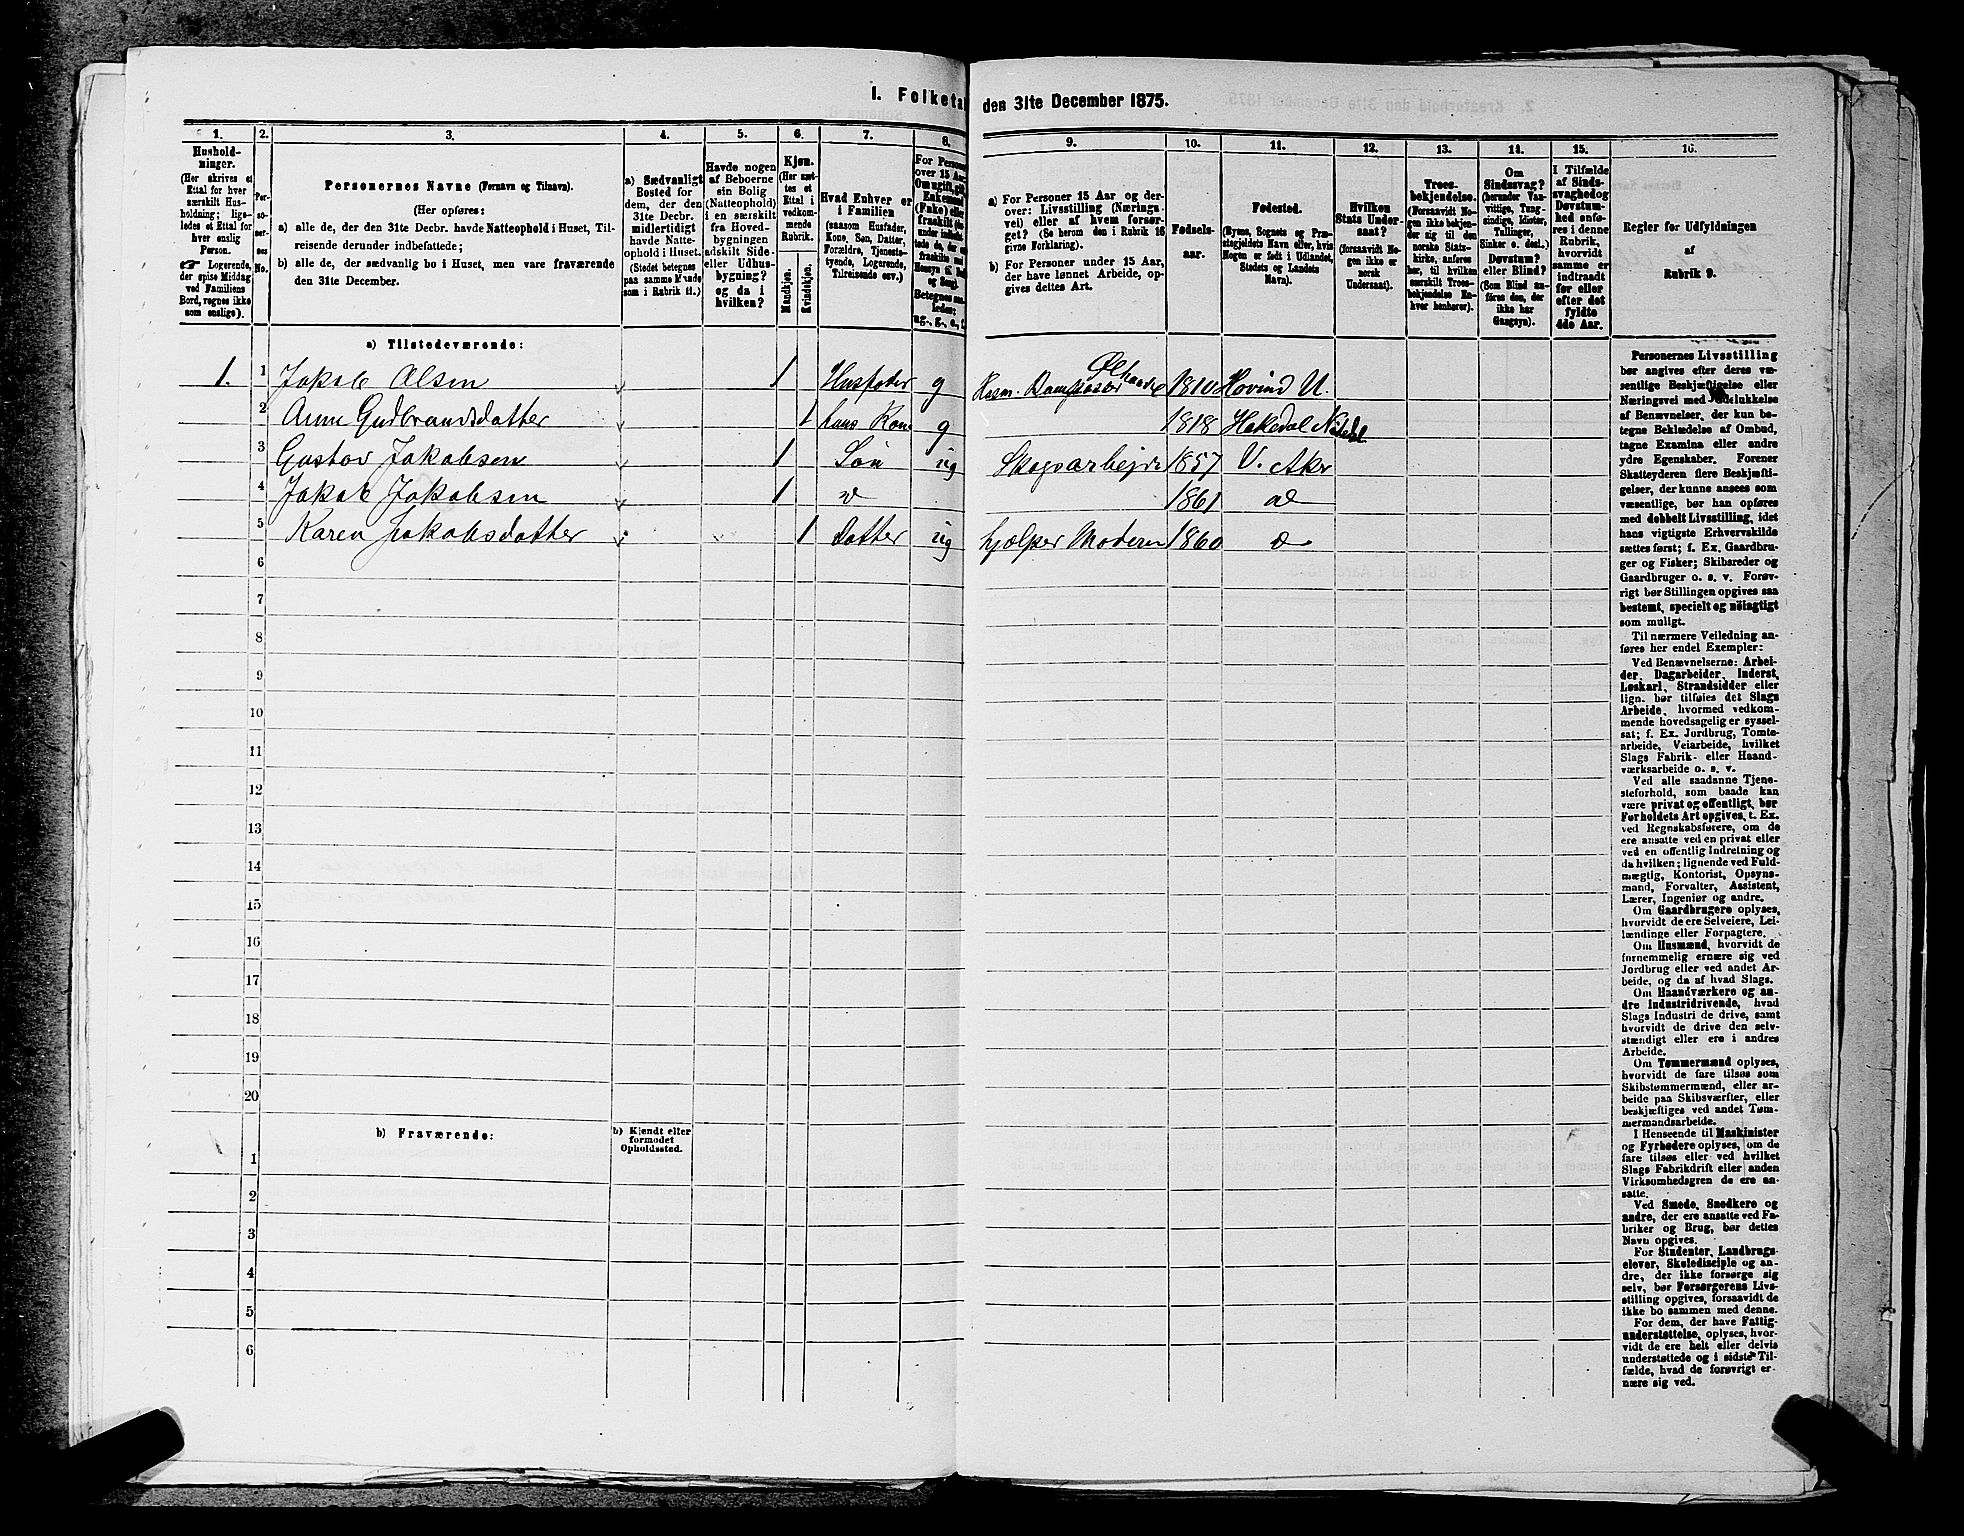 I. Folketa
den 31te December 1875.
1.
Hushold-
ninger.
(Her skrives et
Ettal for hver
særskilt Hus-
holdning; lige-
ledes et Ettal for
hver enslig
Person.
☞ Logerende,
der spise Middag
ved Familiens
Bord, regnes ikke
som enslige).
2.
Per-
so-
ner-
nes
No.
3.
Personernes Navne (Fornavn og Tilnavn).
(Her opføres:
a) alle de, der den 31te Decbr. havde Natteophold i Huset, Til-
reisende derunder indbefattede;
b) alle de, der sædvanlig bo i Huset, men vare fraværende
den 31te December.
4.
a) Sædvanligt
Bosted for
dem, der den
31te Decbr.
midlertidigt
havde Natte-
ophold i Huset.
(Stedet betegnes
paa samme Maade
som i Rubrik 11.)
5.
Havde nogen
af Beboerne
sin Bolig
(Natteophold)
i en særskilt
fra Hoved-
bygningen
adskilt Side-
eller Udhus-
bygning?
og da i
hvilken?
6.
Kjøn.
(Her sæt-
tes et
Ettal i
vedkom-
mende
Rubrik.
Mandkjøn.
Kvindekjøn.
7.
Hvad Enhver er
i Familien
(saasom Husfader,
Kone, Søn, Datter,
Forældre, Tjeneste-
tyende, Logerende,
Tilreisende osv.)
8.
For Person
over 15 Aar
Om ugift, gift,
Enkemand
(Enke) eller
fraskilt
9.
a) For Personer 15 Aar og der-
over: Livsstilling (Nærings
vei) eller af hvem forsør-
get? (Se herom den i Rubrik 16
givne Forklaring).
b) For Personer under 15 Aar,
der have lønnet Arbeide, op-
gives dettes Art.
10.
Fødsels-
aar.
11.
Fødested.
(Byens, Sognets og Præ-
stegjeldets Navn eller, hvis
Nogen er født i Udlandet,
Stedets og Landets
Navn).
12.
Hvilken
Stats Under-
saat?
(forsaavidt No-
gen ikke er
norsk
Undersaat).
13.
Troes-
bekjendelse.
(Forsaavidt No-
gen ikke bekjen-
der sig til den
norske Stats-
kirke, anføres
her, til hvilken
særskilt Troes-
bekjendelse En-
hver henhører).
14.
Om
Sindssvag?
(herunder Van-
vittige, Tung-
sindige, Idioter,
Tullinger,
Sinker o. desl.)
Døvstum?
eller Blind?
(Som Blind an-
føres den, der
ikke har
Gangsyn).
15.
I Tilfælde
af Sinds-
svaghed og
Døvstum-
hed anfø-
res i denne
Rubrik,
hvorvidt
samme er
indtraadt
før eller
efter det
fyldte
4de Aar.
16.
Regler for Udfyldningen
af
Rubrik 9.
a) Tilstedeværende:
1. 1 Jakob Olsen 1 Husfader g 1810 Hovind U.
2 Anne Gudbrandsdatter 1 hans Kone g 1818 Hakedal
3 Gustav Jakobsen 1 Søn ug Skogsarbejde 1857 V. Aker
4 Jakob Jakobsen 1 1861
5 Karen Jakobsdatter 1 Datter ug hjælper Moderen 1860
6
7
8
9
10
11
12
13
14
15
16
17
18
19
20
b) Fraværende:
b) Kjendt eller
formodet
Opholdssted.
1
2
3
4
5
6
Personernes Livsstilling
bør angives efter deres væ-
sentlige Beskjæftigelse eller
Næringsvei med Udelukkelse
af Benævnelser, der kun be-
tegne Beklædelse af Ombud,
tagne Examina eller andre
ydre Egenskaber. Forener
Skatteyderen flere Beskjæfti-
gelser, der kunne ansees som
væsentlige, bør han opføres
med dobbelt Livsstilling, idet
hans vigtigste Erhvervskilde
sættes først; f. Ex. Gaardbru-
ger og Fisker; Skibsreder og
Gaardbruger o. s. v. Forøv-
rigt bør Stillingen opgives saa
bestemt, specielt og nöiagtigt
som muligt.
Til nærmere Veiledning an-
føres her endel Exempler:
Ved Benævnelserne: Arbei-
der, Dagarbeider, Inderst,
Løskarl, Strandsidder eller
lign. bør tilføies det Slags
Arbeide, hvormed vedkom-
mende hovedsagelig er syssel-
sat; f. Ex. Jordbrug, Tomte-
arbeide, Veiarbeide, hvilket
Slags Fabrik- eller Haand-
værksarbeide o. s. v.
Ved alle saadanne Tjene-
steforhold, som baade kan
være privat og offentligt, bør
Forholdets Art opgives, t. Ex.
ved Regnskabsførere, om de
ere ansatte ved en privat eller
ved en offentlig Indretning og
da hvilken; lignende ved Fuld-
mægtig, Kontorist, Opsyns-
mand, Forvalter, Assistent,
Lærer, Ingeniør og andre.
Om Gaardbrugere oplyses,
hvorvidt de ere Selveiere, Lei-
lændinge eller Forpagtere.
Om Husmænd, hvorvidt de
fornemmelig ernære sig ved
Jordbrug eller ved andet Ar-
beide, og da af hvad Slags.
Om Haandværkere og an-
dre Industridrivende, hvad
Slags Industri de drive, samt
hvorvidt de drive den selv-
stændigt eller ere i andres
Arbeide.
Om Tømmermænd oplyses,
hvorvidt de fare tilsøs som
Skibstømmermænd, eller ar-
beide paa Skibsværfter, eller
beskjæftiges ved andet Tøm-
mermandsarbeide.
I Henseende til Maskinister
og Fyrbødere oplyses, om de
fare tilsøs eller ved hvilket
Slags Fabrikdrift eller anden
Virksomhedsgren de ere an-
satte.
Ved Smede, Snedkere og
andre, der ere ansatte ved Fa-
briker og Brug, bør dettes
Navn opgives.
For Studenter, Landbrugs-
elever, Skoledisciple og an-
dre, der ikke forsørge sig
selv, bør Forsørgerens Livs-
stilling opgives, forsaavidt de
ikke bo sammen med denne.
For dem, der have Fattig-
understøttelse, oplyses, hvor-
vidt de ere helt eller delvis
understøttede og i sidste Til-
fælde, hvad de forøvrigt er-
nære sig ved.